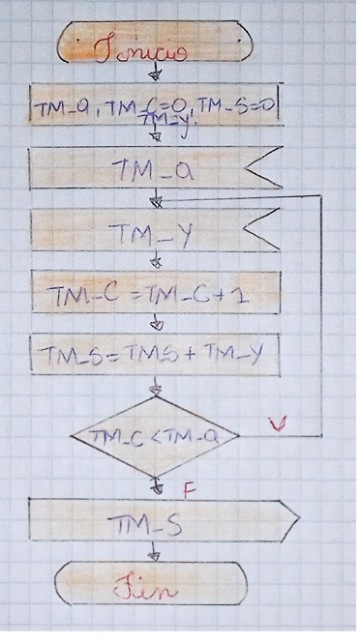 Inicio
TM_a, TM_C=0, TM_S=0
TM_y.
TM_a
TM_Y
TM_C = TM_C+1
TM_S= TMS + TM_Y
TM_C < TM_a
V
F
TM_S
Fin